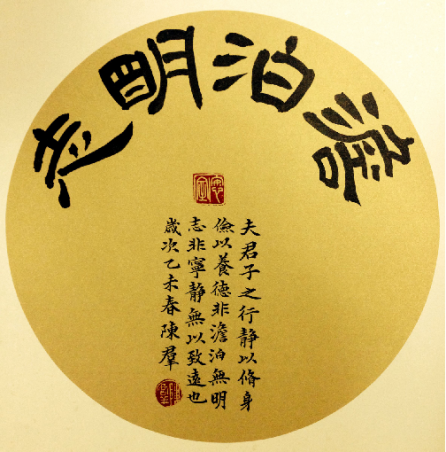 澹泊明志
夫君子之行静以脩身
儉以養德非澹泊無明
志非寧静無以致遠也
歲次乙未春陳羣